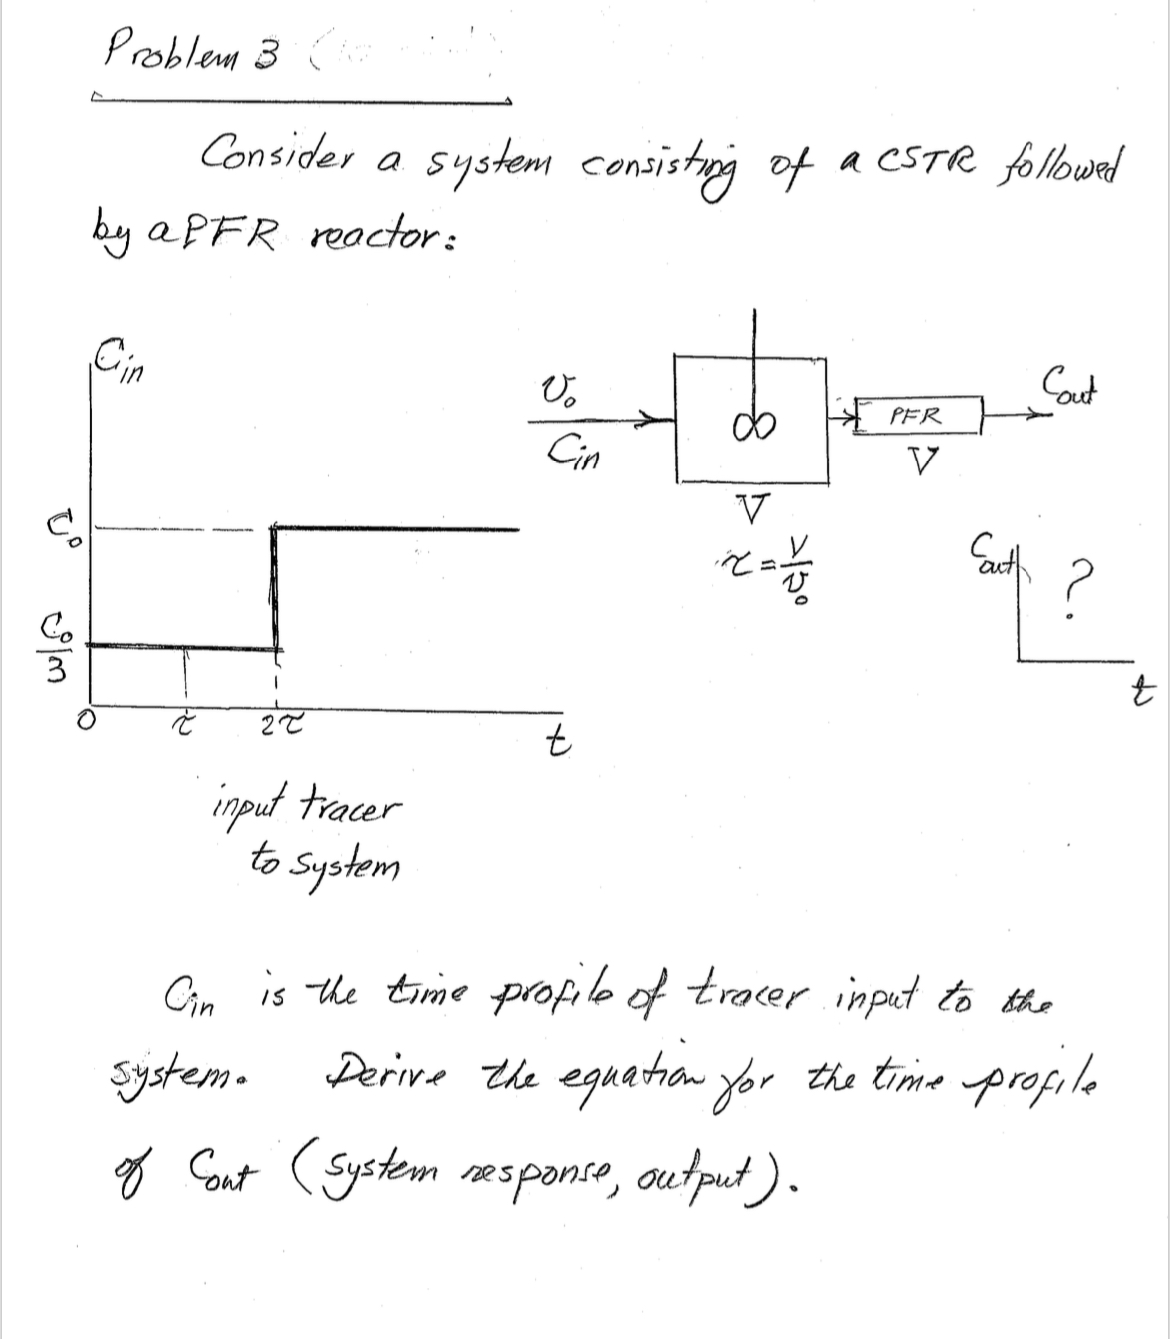 Problem 3
Consider a system consisting of a CSTR followed
by a PFR reactor:
Cin
C₀
C₀/3
0 τ 2τ t
input tracer
to system
v₀
Cin
V
τ = V/v₀
PFR
V
Cout
Cout ?
t
Cin is the time profile of tracer input to the
system. Derive the equation for the time profile
of Cout (system response, output).